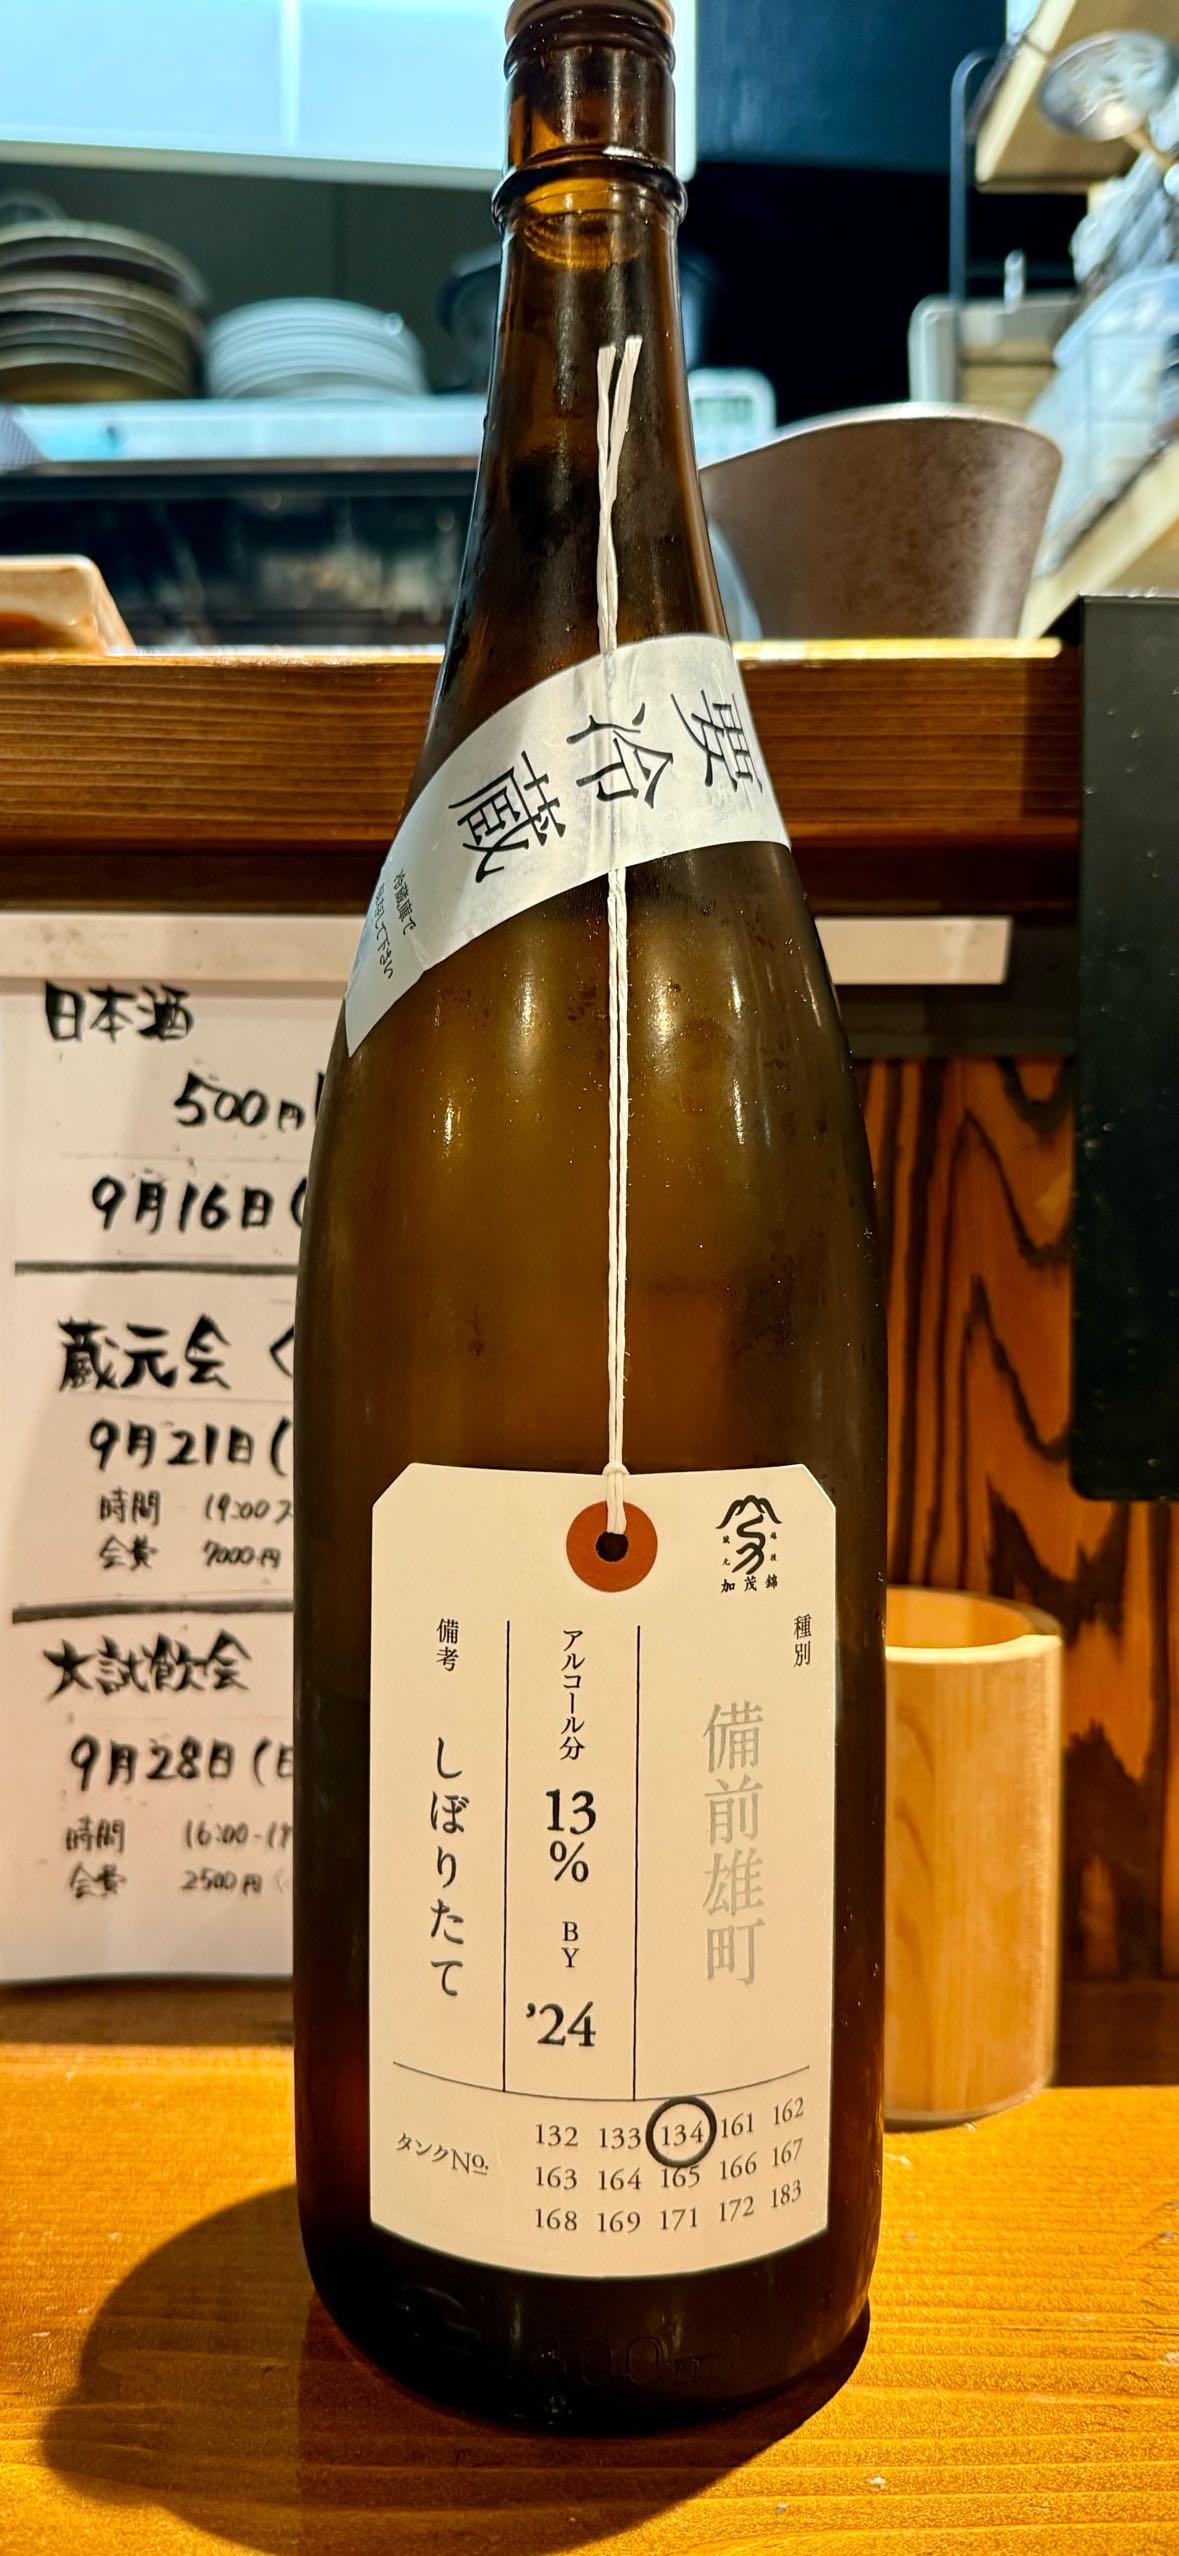 要冷蔵
冷蔵庫で
保存して下さい
日本酒
500円
9月16日(
蔵元会 く
9月21日(
時間 19:00ス
会費 7000円
大試飲会
9月28日(日
時間 16:00-19
会費 2500円
越後
蔵元
加茂錦
種別
備前雄町
アルコール分 13% BY '24
備考 しぼりたて
タンクNo.
132 133 134 161 162
163 164 165 166 167
168 169 171 172 183
1800ml